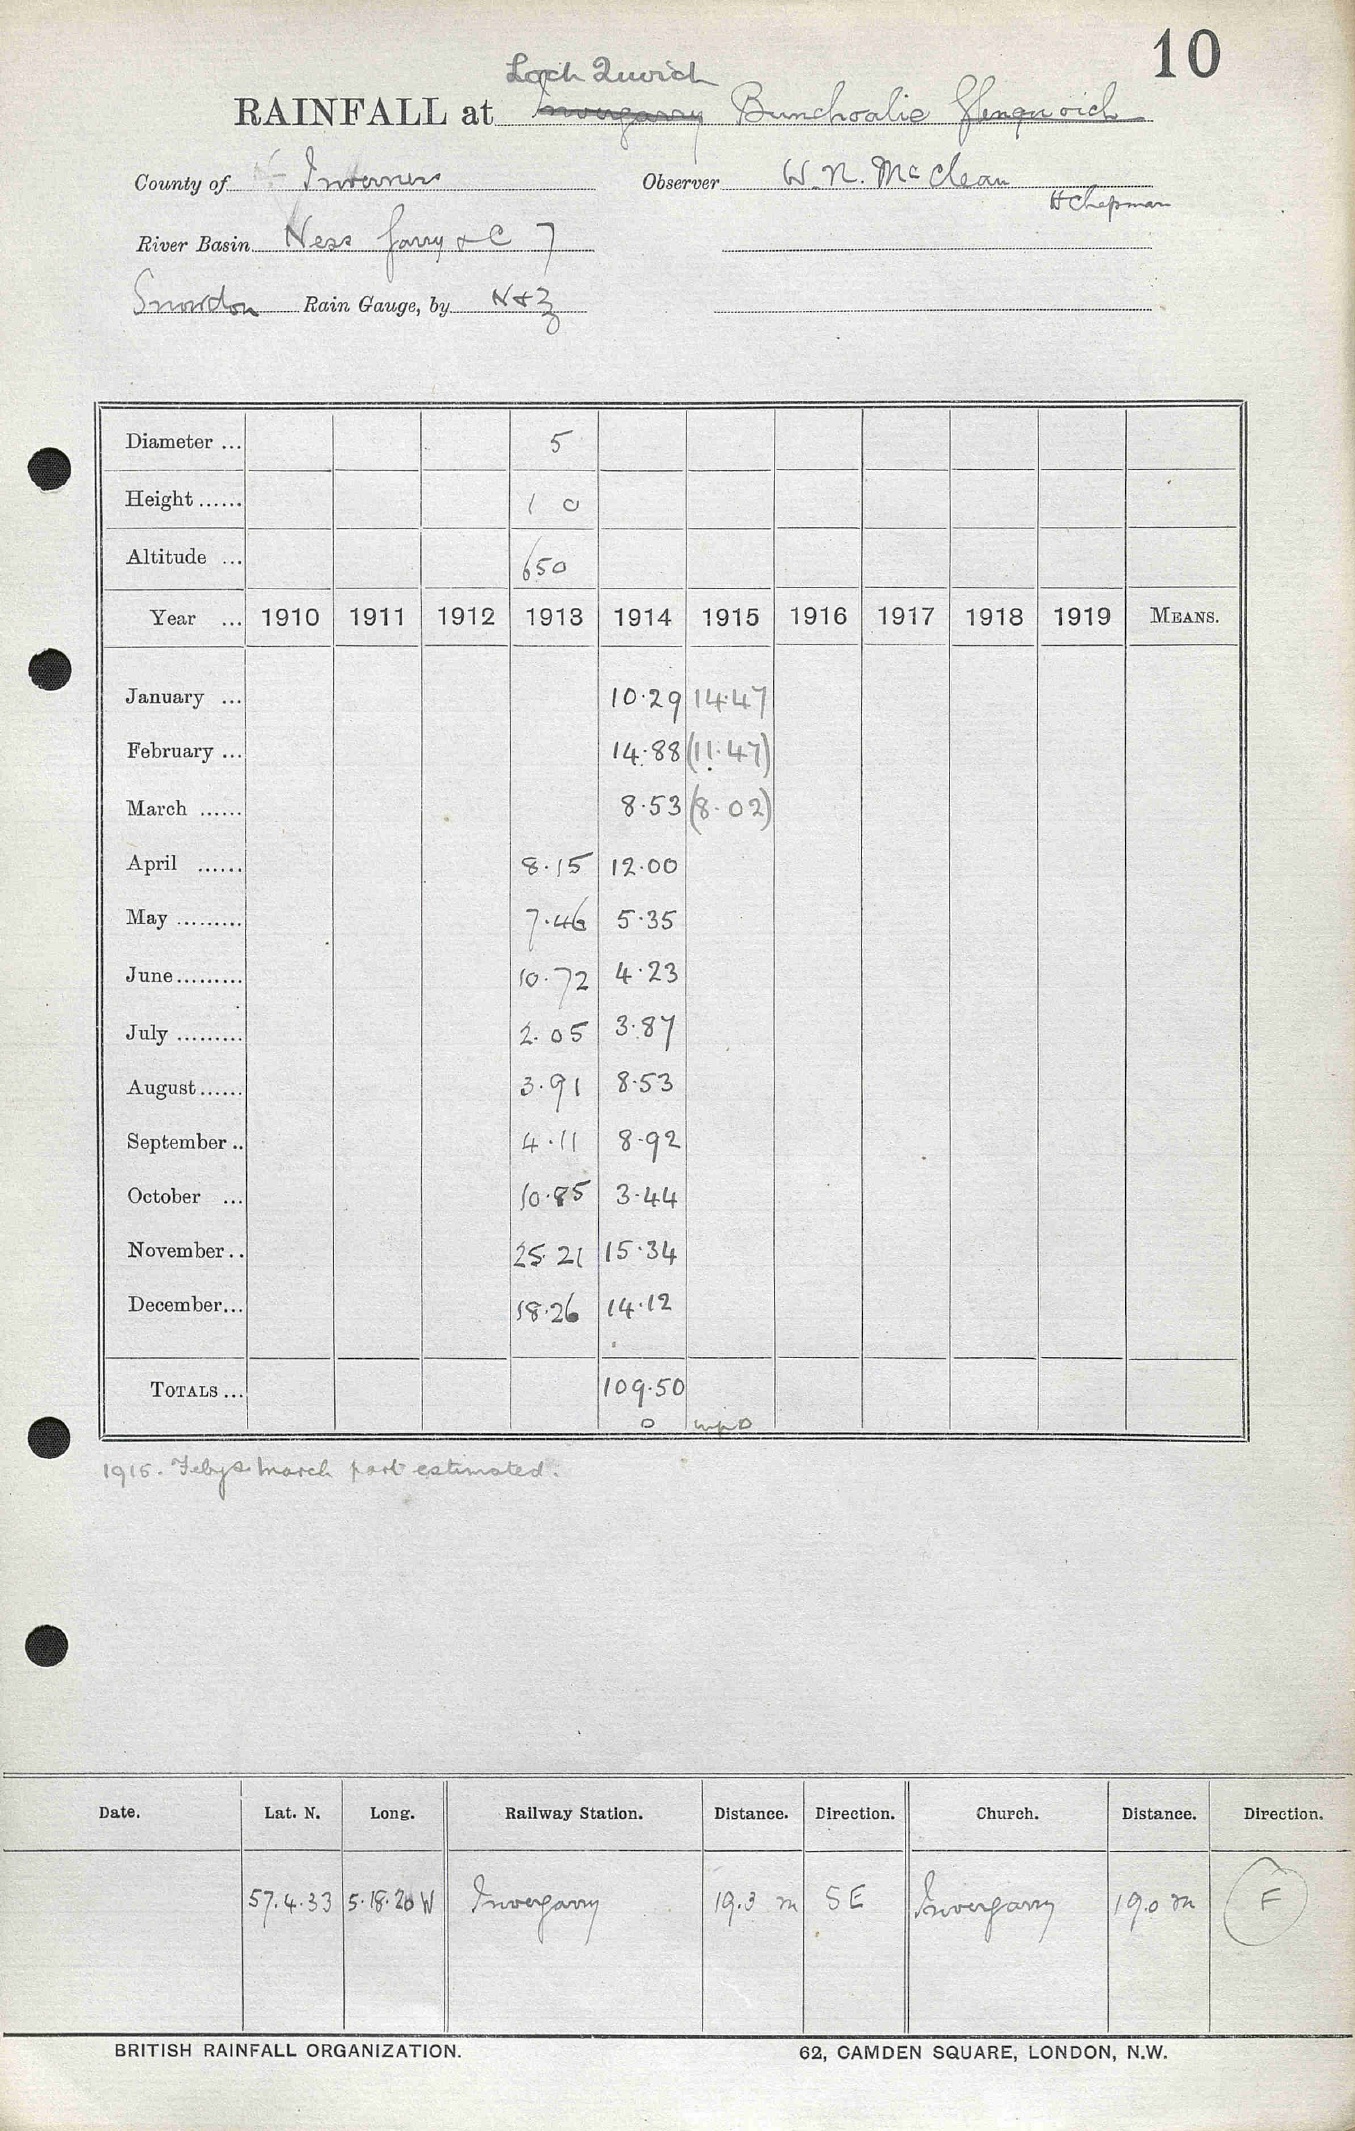 10
Loch Quoich
RAINFALL at Invergarry Bunchoalie Glenquoich
County of Inverness Observer W. N. McClean
H Chapman
River Basin Ness Garry & C 7
Snowdon Rain Gauge, by N & Z
Diameter ... 5
Height ...... 1 0
Altitude ... 650
Year ... 1910 1911 1912 1913 1914 1915 1916 1917 1918 1919 MEANS.
January ... 10.29 14.47
February ... 14.88 (11.47)
March ...... 8.53 (8.02)
April ...... 8.15 12.00
May ......... 7.46 5.35
June ......... 10.72 4.23
July ......... 2.05 3.87
August ...... 3.91 8.53
September .. 4.11 8.92
October ... 10.85 3.44
November .. 25.21 15.34
December ... 18.26 14.12
TOTALS ... 109.50
1915. Feby & March part estimated.
Date. Lat. N. Long. Railway Station. Distance. Direction. Church. Distance. Direction.
57.4.33 5.18.20 W Invergarry 19.3 m SE Invergarry 19.0 m F
BRITISH RAINFALL ORGANIZATION. 62, CAMDEN SQUARE, LONDON, N.W.